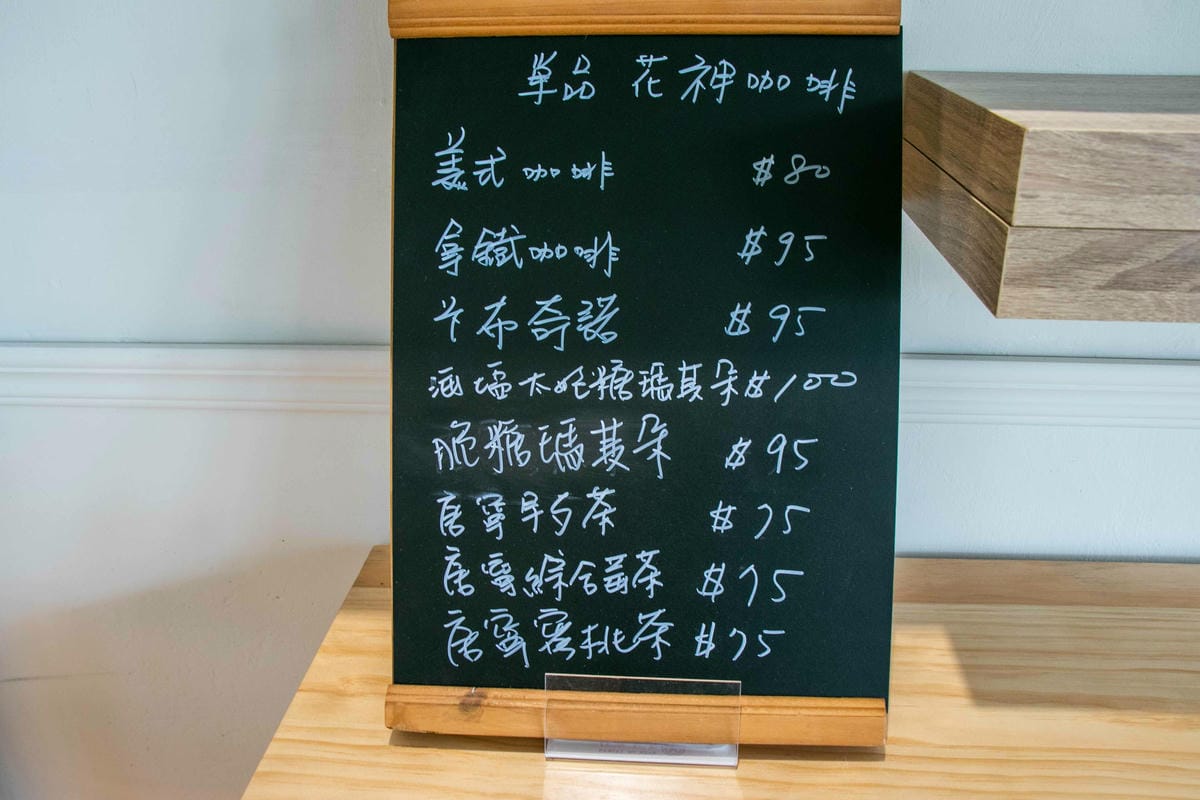 單品 花神咖啡
美式咖啡 $80
拿鐵咖啡 $95
卡布奇諾 $95
海塩太妃糖瑪其朵 $100
脆糖瑪其朵 $95
唐寧早安茶 $75
唐寧綜合莓茶 $75
唐寧蜜桃茶 $75